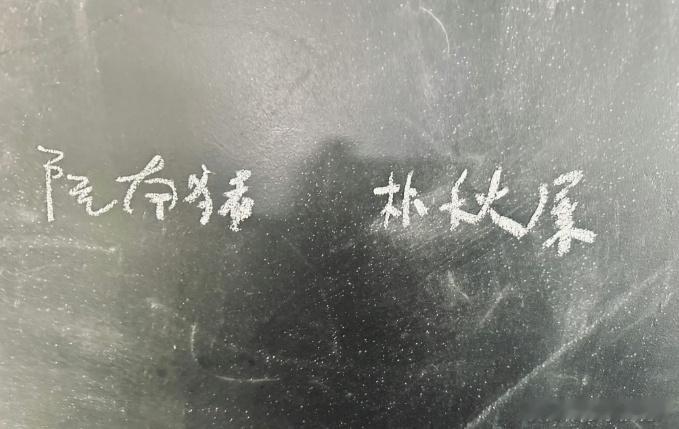 阮南猪 朴秋屎